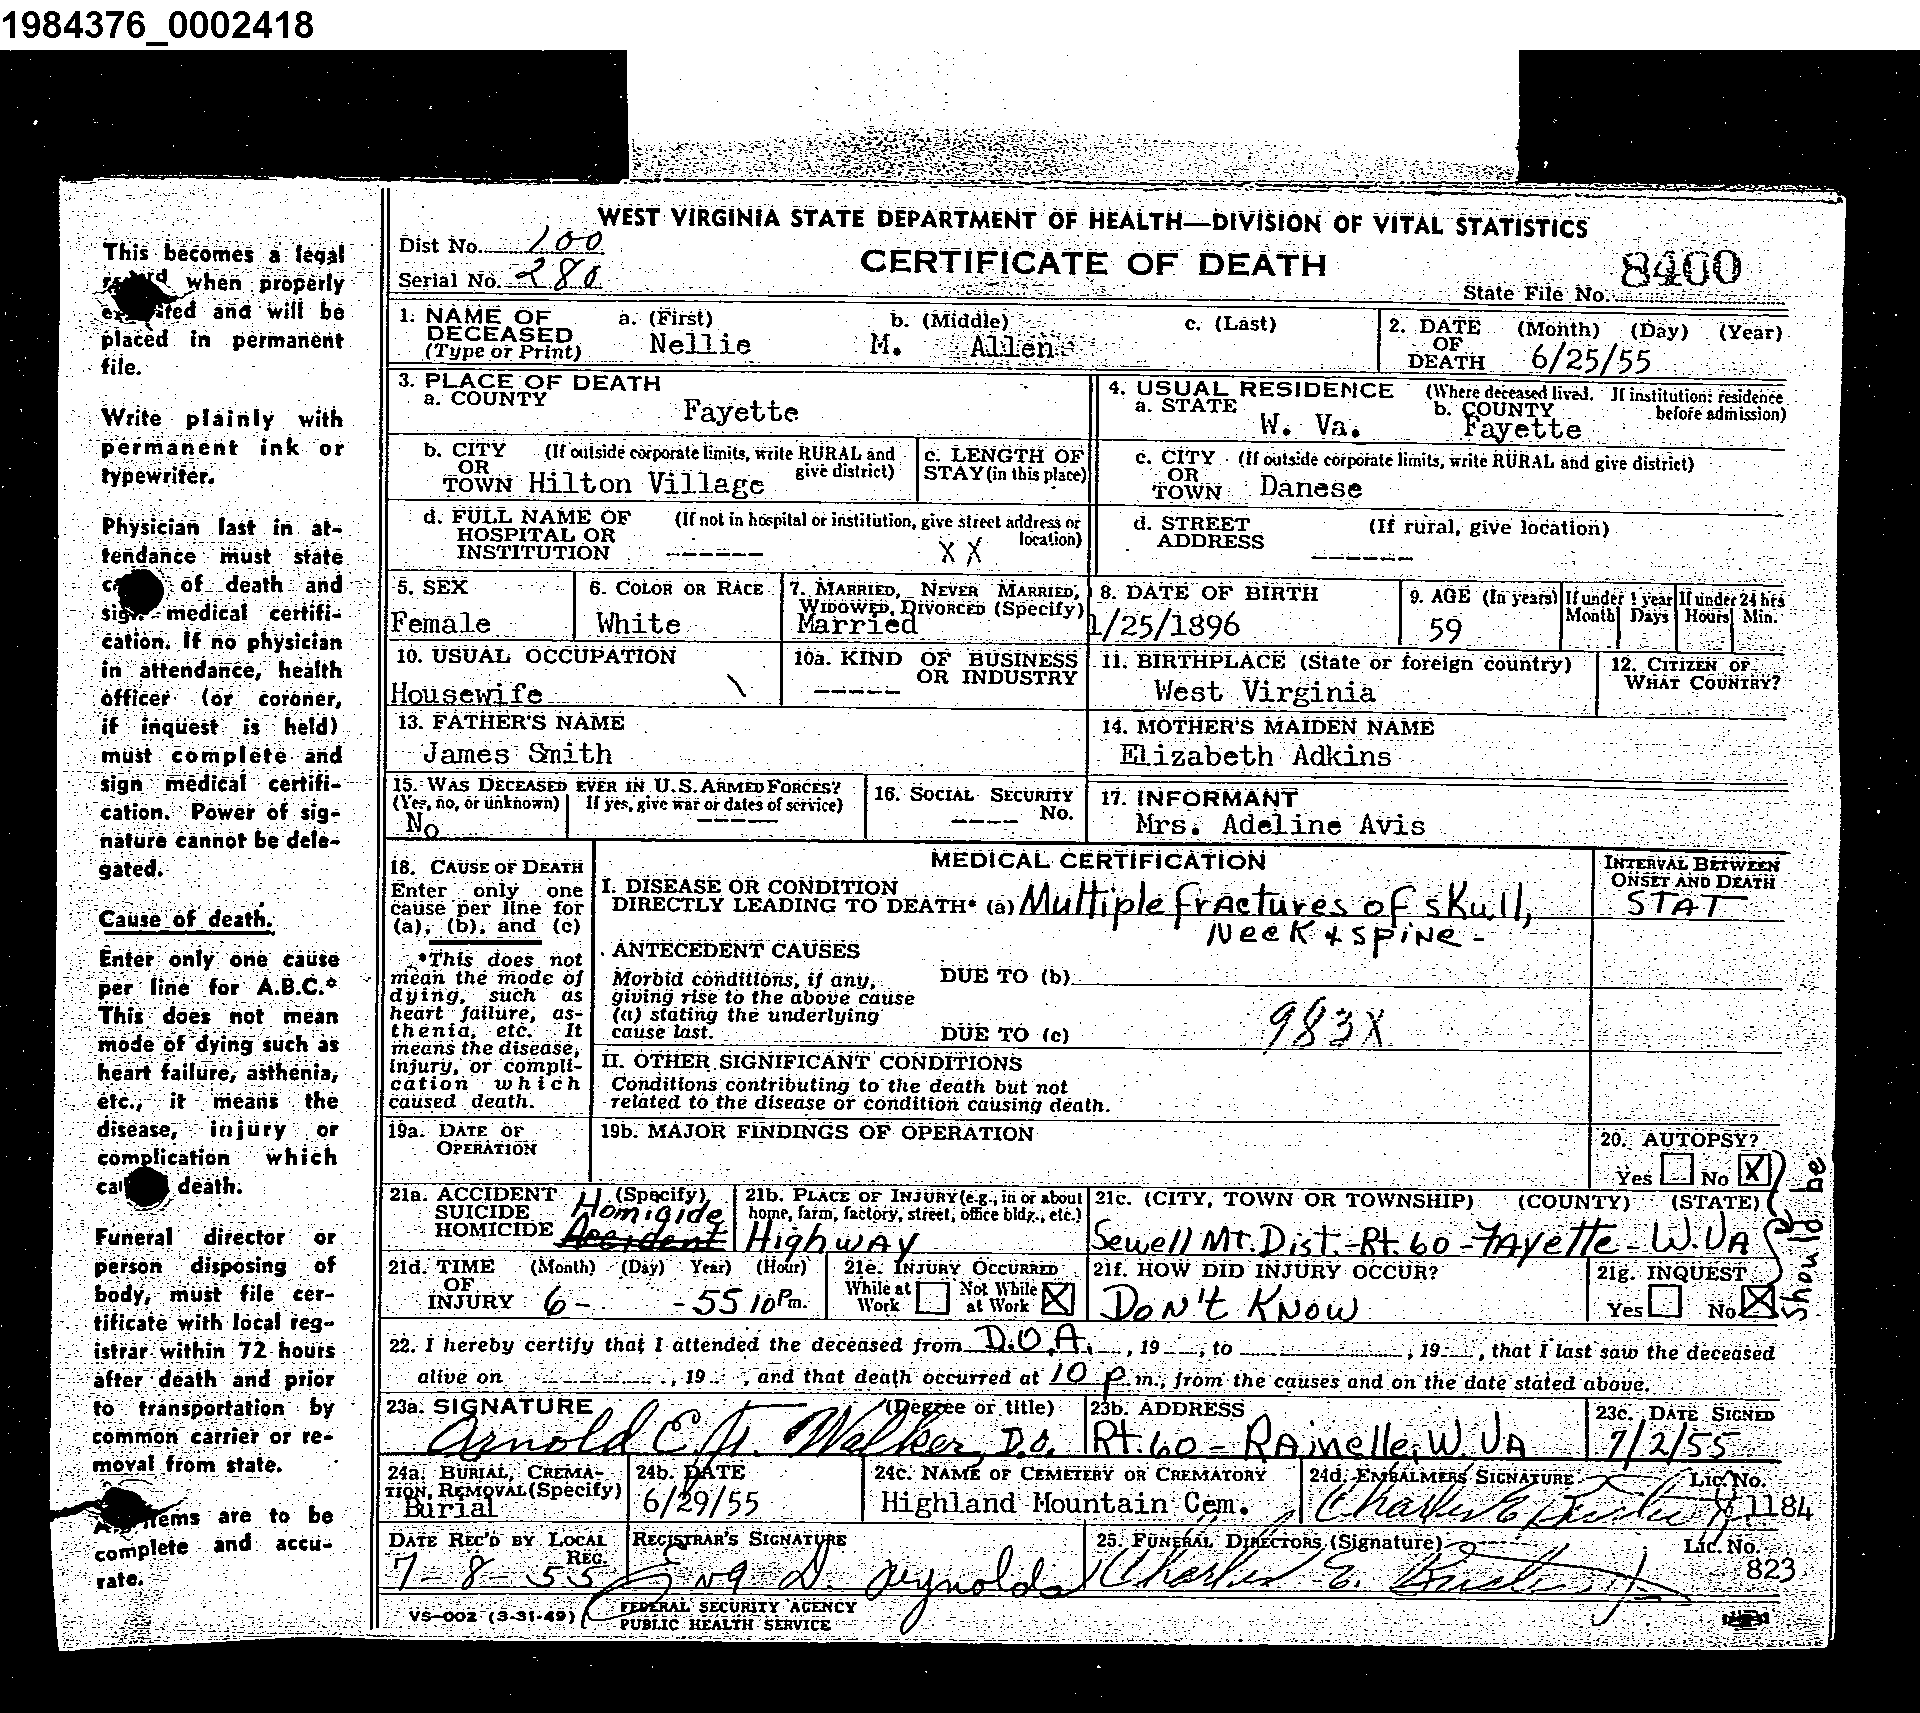 1984376_0002418
WEST VIRGINIA STATE DEPARTMENT OF HEALTH—DIVISION OF VITAL STATISTICS
Dist No. 100
Serial No. 280
CERTIFICATE OF DEATH
8400
State File No.
1. NAME OF DECEASED (Type or Print)
a. (First) b. (Middle) c. (Last)
Nellie M. Allen
2. DATE OF DEATH (Month) (Day) (Year)
6/25/55
3. PLACE OF DEATH
a. COUNTY
Fayette
4. USUAL RESIDENCE (Where deceased lived. If institution: residence before admission)
a. STATE W. Va.
b. COUNTY Fayette
b. CITY OR TOWN (If outside corporate limits, write RURAL and give district)
Hilton Village
c. LENGTH OF STAY (in this place)
c. CITY OR TOWN (If outside corporate limits, write RURAL and give district)
Danese
d. FULL NAME OF HOSPITAL OR INSTITUTION (If not in hospital or institution, give street address or location)
------ X X
d. STREET ADDRESS (If rural, give location)
------
5. SEX
Female
6. COLOR OR RACE
White
7. MARRIED, NEVER MARRIED, WIDOWED, DIVORCED (Specify)
Married
8. DATE OF BIRTH
1/25/1896
9. AGE (In years)
59
If under 1 year Month Days
If under 24 hrs Hours Min.
10. USUAL OCCUPATION
Housewife
10a. KIND OF BUSINESS OR INDUSTRY
-----
11. BIRTHPLACE (State or foreign country)
West Virginia
12. CITIZEN OF WHAT COUNTRY?
13. FATHER'S NAME
James Smith
14. MOTHER'S MAIDEN NAME
Elizabeth Adkins
15. WAS DECEASED EVER IN U.S. ARMED FORCES?
(Yes, no, or unknown) If yes, give war or dates of service)
No -----
16. SOCIAL SECURITY No.
----
17. INFORMANT
Mrs. Adeline Avis
18. CAUSE OF DEATH
Enter only one
cause per line for
(a), (b), and (c)
*This does not
mean the mode of
dying, such as
heart failure, as-
thenia, etc. It
means the disease,
injury, or compli-
cation which
caused death.
MEDICAL CERTIFICATION
INTERVAL BETWEEN ONSET AND DEATH
I. DISEASE OR CONDITION
DIRECTLY LEADING TO DEATH* (a) Multiple fractures of skull,
Neck & spine -
STAT
ANTECEDENT CAUSES
Morbid conditions, if any,
giving rise to the above cause
(a) stating the underlying
cause last.
DUE TO (b)
DUE TO (c)
983X
II. OTHER SIGNIFICANT CONDITIONS
Conditions contributing to the death but not
related to the disease or condition causing death.
19a. DATE OF OPERATION
19b. MAJOR FINDINGS OF OPERATION
20. AUTOPSY?
Yes No X
should be
21a. ACCIDENT SUICIDE HOMICIDE (Specify)
H
Homigide
Accident
21b. PLACE OF INJURY (e.g., in or about home, farm, factory, street, office bldg., etc.)
Highway
21c. (CITY, TOWN OR TOWNSHIP) (COUNTY) (STATE)
Sewell Mt. Dist.-Rt. 60 - Fayette - W.VA
21d. TIME OF INJURY (Month) (Day) Year) (Hour)
6- -55 10 Pm.
21e. INJURY OCCURRED
While at Work Not While at Work X
21f. HOW DID INJURY OCCUR?
Don't Know
21g. INQUEST
Yes No X
22. I hereby certify that I attended the deceased from D.O.A., 19 , to , 19 , that I last saw the deceased
alive on , 19 , and that death occurred at 10 p m., from the causes and on the date stated above.
23a. SIGNATURE (Degree or title)
Arnold C. Walker, D.O.
23b. ADDRESS
Rt. 60 - Rainelle, W. VA
23c. DATE SIGNED
7/2/55
24a. BURIAL, CREMA-
TION, REMOVAL (Specify)
Burial
24b. DATE
6/29/55
24c. NAME OF CEMETERY OR CREMATORY
Highland Mountain Cem.
24d. EMBALMERS SIGNATURE Lic. No.
Charles E 1184
DATE REC'D BY LOCAL REG.
7-8-55
REGISTRAR'S SIGNATURE
D. Reynolds
25. FUNERAL DIRECTORS (Signature) Lic. No.
Charles E. 823
VS-002 (3-31-49)
FEDERAL SECURITY AGENCY
PUBLIC HEALTH SERVICE
This becomes a legal
when properly
and will be
placed in permanent
file.
Write plainly with
permanent ink or
typewriter.
Physician last in at-
tendance must state
of death and
sign medical certifi-
cation. If no physician
in attendance, health
officer (or coroner,
if inquest is held)
must complete and
sign medical certifi-
cation. Power of sig-
nature cannot be dele-
gated.
Cause of death.
Enter only one cause
per line for A.B.C.*
This does not mean
mode of dying such as
heart failure, asthenia,
etc., it means the
disease, injury or
complication which
death.
Funeral director or
person disposing of
body, must file cer-
tificate with local reg-
istrar within 72 hours
after death and prior
to transportation by
common carrier or re-
moval from state.
items are to be
complete and accu-
rate.